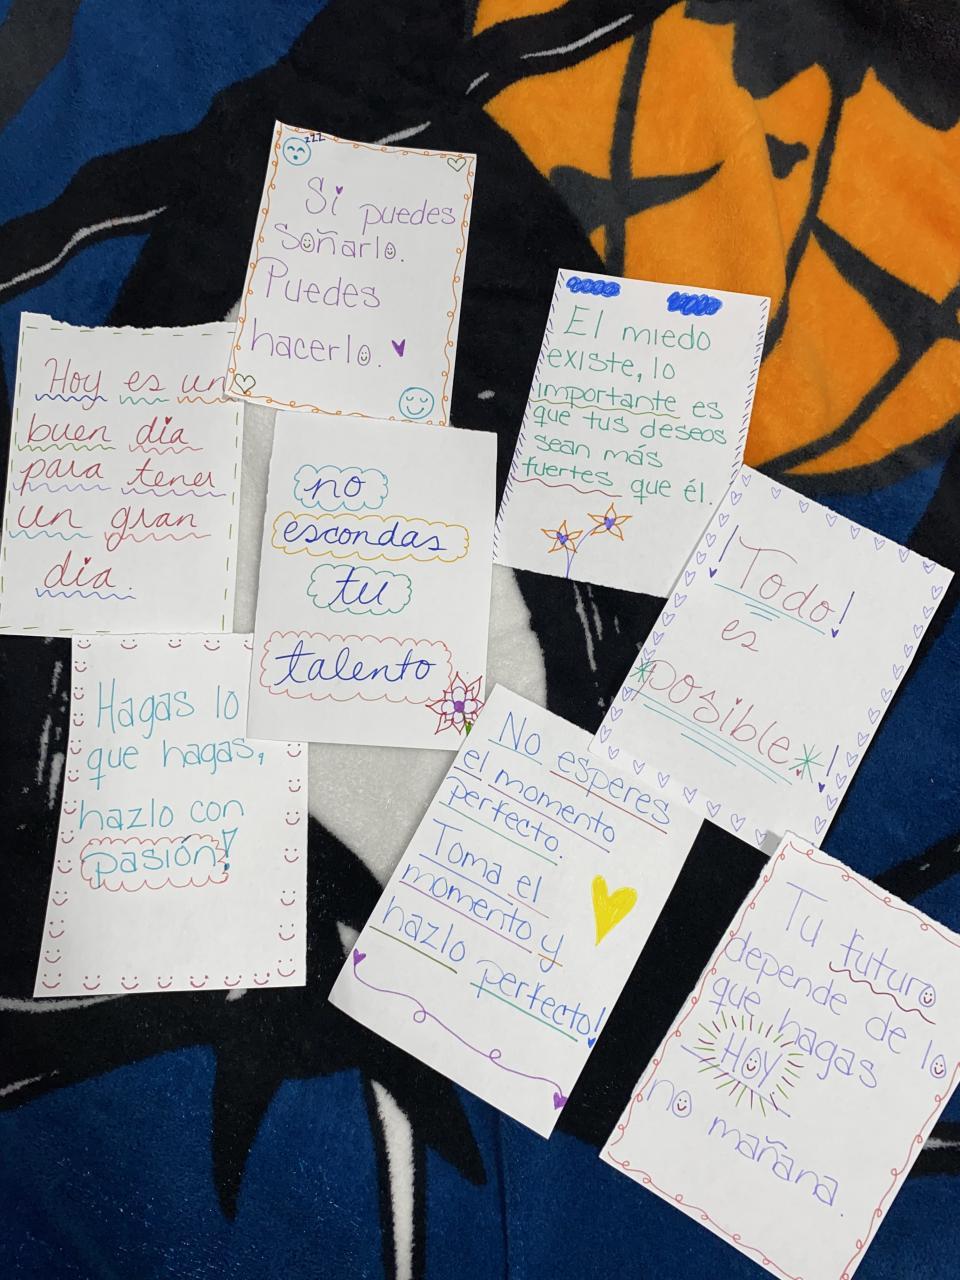 zzz
Si puedes
soñarlo.
Puedes
hacerlo.
El miedo
existe, lo
importante es
que tus deseos
sean más
fuertes que él.
Hoy es un
buen dia
para tener
un gran
dia.
no
escondas
tu
talento
¡Todo!
es
posible!
Hagas lo
que hagas,
hazlo con
pasión!
No esperes
el momento
perfecto.
Toma el
momento y
hazlo perfecto!
Tu futuro
depende de lo
que hagas
HOY
no mañana.